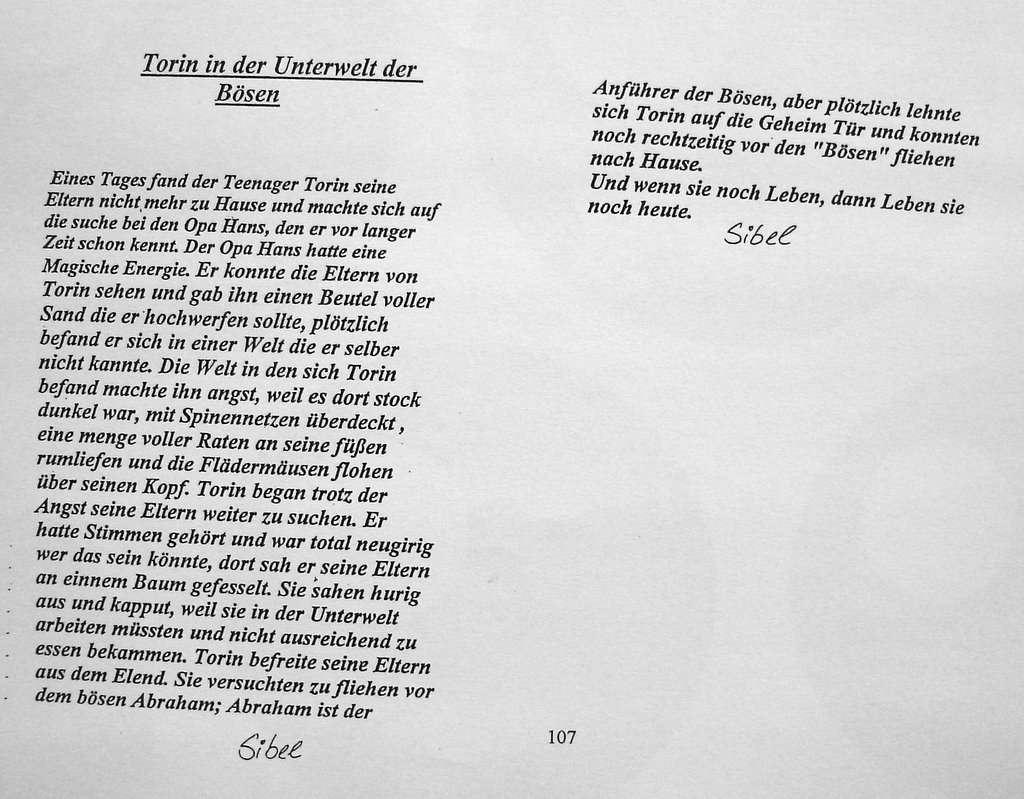 Torin in der Unterwelt der
Bösen
Eines Tages fand der Teenager Torin seine
Eltern nicht mehr zu Hause und machte sich auf
die suche bei den Opa Hans, den er vor langer
Zeit schon kennt. Der Opa Hans hatte eine
Magische Energie. Er konnte die Eltern von
Torin sehen und gab ihn einen Beutel voller
Sand die er hochwerfen sollte, plötzlich
befand er sich in einer Welt die er selber
nicht kannte. Die Welt in den sich Torin
befand machte ihn angst, weil es dort stock
dunkel war, mit Spinennetzen überdeckt ,
eine menge voller Raten an seine füßen
rumliefen und die Flädermäusen flohen
über seinen Kopf. Torin began trotz der
Angst seine Eltern weiter zu suchen. Er
hatte Stimmen gehört und war total neugirig
wer das sein könnte, dort sah er seine Eltern
an einnem Baum gefesselt. Sie sahen hurig
aus und kapput, weil sie in der Unterwelt
arbeiten müssten und nicht ausreichend zu
essen bekammen. Torin befreite seine Eltern
aus dem Elend. Sie versuchten zu fliehen vor
dem bösen Abraham; Abraham ist der
Sibel
Anführer der Bösen, aber plötzlich lehnte
sich Torin auf die Geheim Tür und konnten
noch rechtzeitig vor den "Bösen" fliehen
nach Hause.
Und wenn sie noch Leben, dann Leben sie
noch heute.
Sibel
107